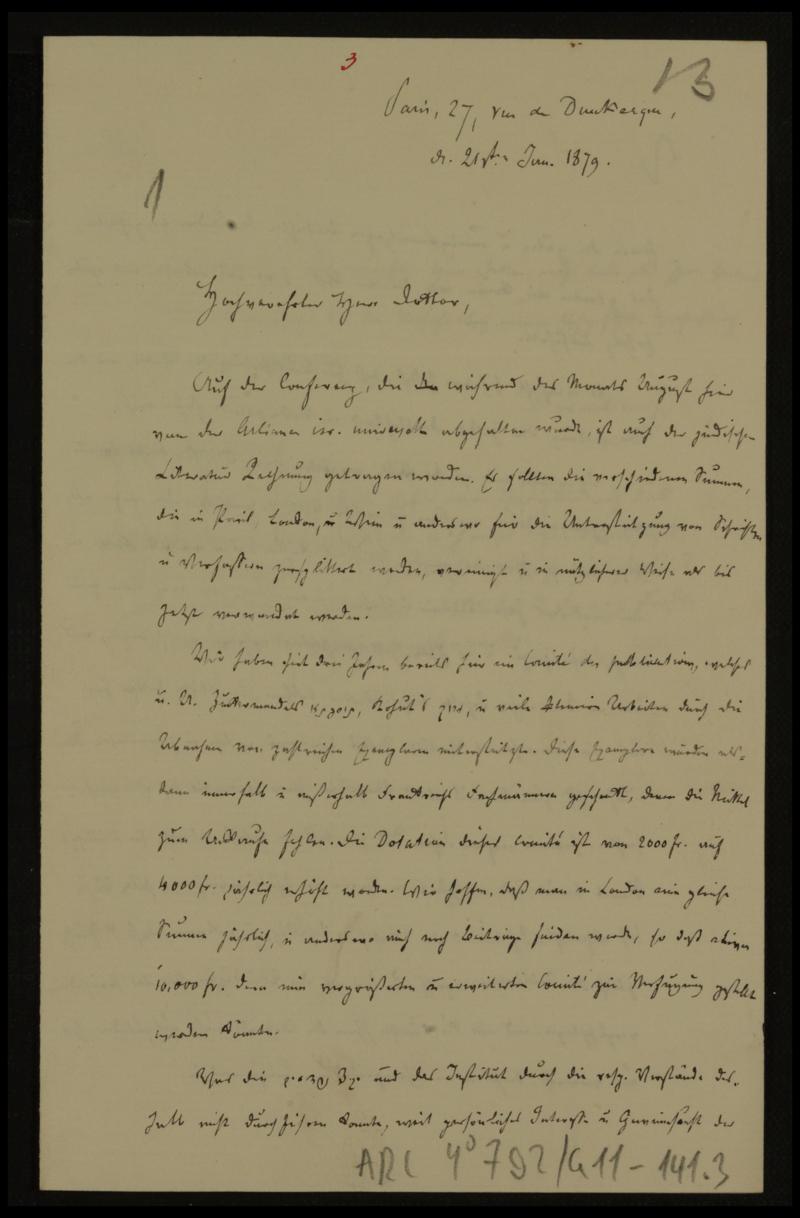 3
13
Paris, 27, rue de Dunkerque,
d. 21sten Jan. 1879.
1
Hochverehrter Herr Doktor,
Auf der Conferenz, die während des Monats August hier
von der Alliance isr. universelle abgehalten wurde, ist auch der jüdischen
Literatur Rechnung getragen worden. Es sollten die verschiedenen Summen,
die in Paris, London, u Wien u anderswo für die Unterstützung von Schriften
u Verfassern zersplittert werden, vereinigt u in nützlicherer Weise als bis
jetzt verwendet werden.
Wir haben seit drei Jahren bereits hier ein Comité des publications, welches
u. A. Zuckermandels תוספתא, Kohut's ערוך, u viele kleinere Arbeiten durch die
Abnahme von zahlreichen Exemplaren unterstützte. Diese Exemplare wurden als-
dann innerhalb u außerhalb Frankreichs Fachmännern geschenkt, denen die Mittel
zum Ankaufe fehlen. Die Dotation dieses Comité ist von 2000 fr. auf
4000 fr. jährlich erhöht worden. Wir hoffen, daß man in London eine gleiche
Summe jährlich, u anderswo auch noch Beiträge finden werde, so daß etwa
10,000 fr. dem nun vergrößerten u erweiterten Comité zur Verfügung gestellt
werden könnte.
Was die und das Institut durch die resp. Vorstände des-
halb nicht durchführen konnte, weil persönliches Interesse u Gewinnsucht der
ARC 4° 792/G11-141.3